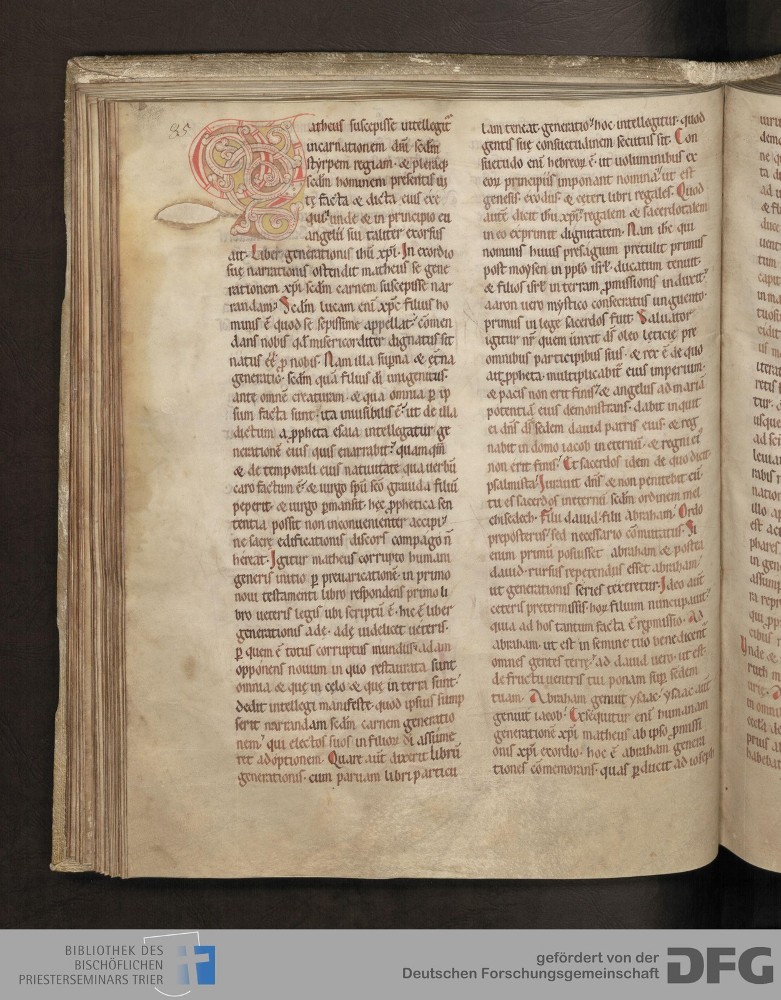 85
Matheus suscepisse intellegit᷑
incarnationem dnī scdm̄
styrpem regiam · & pleraq;
scdm̄ hominem presentis ui
tę facta & dicta eius exe
qui᷑ unde & in principio eu
angelii sui taliter exorsus
ait · Liber generationis ihū xp̄i · In exordio
suę narrationis ostendit matheus se gene
rationem xp̄i scdm̄ carnem suscepisse nar
randam · Scdm̄ lucam eni xp̄c filius ho
minis ē quod se sepissime appellat · cōmen
dans nobis qd̄ misericorditer dignatus sit
natus eē p nobis · Nam illa supna & ęt̄na
generatio · scdm̄ quā filius dī unigenitus ·
ante omnē creaturam · & qua omnia p ip
sum facta sunt · ita inuisibilis ē · ut de illa
dictum a ppheta esaia intellegatur ge
nerationē eius quis enarrabit · quamqm̄
& de temporali eius natiuitate qua uerbū
caro factum ē & uirgo spū scō grauida filiū
peperit · & uirgo pmansit · hęc pphetica sen
tentia possit non inconuenienter accipi ·
ne sacrę edificationis discors compago n̄
hereat · Igitur matheus corrupto humani
generis initio p preuaricationē · in primo
noui testamenti libro respondens primo li
bro ueteris legis ubi scriptū ē · hic ē liber
generationis adę · adę uidelicet ueteris ·
p quem ē totus corruptus mundus · adam
opponens nouum in quo restaurata sunt
omnia & quę in cęlo & quę in terra sunt ·
dedit intellegi manifeste · quod ipsius sump
serit narrandam scdm̄ carnem generatio
nem · qui electos suos in filior̄ dī assume
ret adoptionem · Quare aut̄ dixerit librū
generationis · cum paruam libri particu
lam teneat generatio · hoc intellegitur · quod
gentis suę consuetudinem secutus sit · Con
suetudo eni hebreor̄ ē · ut uoluminibus ex
eor̄ principiis imponant nomina · ut est
genesis · exodus · & ceteri libri regales · Quod
aut̄ dicit ihū xp̄i · regalem & sacerdotalem
in eo exprimit dignitatem · Nam ihc qui
nominis huius presagium pretulit primus
post moysen in pplō isrl̄ · ducatum tenuit ·
& filios isrl̄ in terram pmissionis induxit ·
aaron uero mystico consecratus unguento ·
primus in lege sacerdos fuit · Saluator
igitur nr̄ quem unxit ds̄ oleo leticię prę
omnibus participibus suis · & rex ē de quo
ait ppheta · multiplicabit̄ eius imperium ·
& pacis non erit finis · & angelus ad mariā
potentiā eius demonstrans · dabit inquit
ei dns̄ ds̄ sedem dauid patris eius · & reg
nabit in domo iacob in eternū · & regni ei᷒
non erit finis · Et sacerdos idem de quo dicit
psalmista · Iurauit dns̄ & non penitebit eū ·
tu es sacerdos in eternū · scdm̄ ordinem mel
chisedech · Filii dauid · filii abraham · Ordo
preposterus · sed necessario cōmutatus · Si
enim primū posuisset abraham & postea
dauid · rursus repetendus esset abraham ·
ut generationis series texeretur · Ideo aut̄
ceteris pretermissis · hor̄ filium nuncupauit ·
quia ad hos tantum facta ē repmissio · Ad
abraham · ut est in semine tuo benedicent̄
omnes gentes terrę · ad dauid uero · ut est ·
de fructu uentris tui ponam sup sedem
tuam · Abraham genuit ysaac · ysaac aut̄
genuit iacob · Exsequitur eni humanam
generationē xp̄i matheus ab ipso pmissi
onis xp̄i exordio · hoc ē abraham genera
tiones cōmemorans · quas pducit ad ioseph
BIBLIOTHEK DES
BISCHÖFLICHEN
PRIESTERSEMINARS TRIER
gefördert von der
Deutschen Forschungsgemeinschaft
DFG